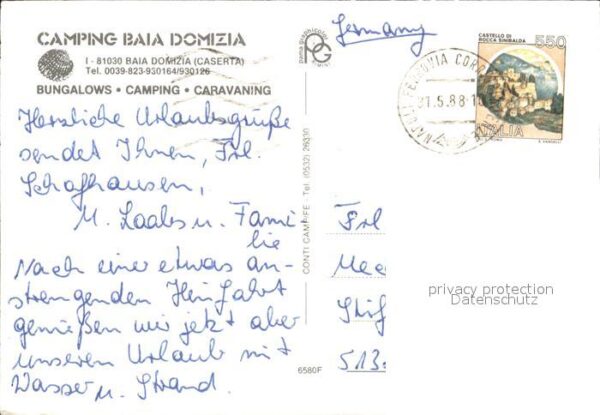 CAMPING BAIA DOMIZIA
I - 81030 BAIA DOMIZIA (CASERTA)
Tel. 0039-823-930164/930126
BUNGALOWS • CAMPING • CARAVANING
Herzliche Urlaubsgrüße
sendet Ihnen, Frl.
Schafhausen,
M. Laabs u. Fami
lie
Nach einer etwas an-
strengenden Hinfahrt
genießen wir jetzt aber
unseren Urlaub mit
Wasser u. Strand.
PG
CONTI CAMPIFE - Tel. (0532) 26330
6580F
Germany
CASTELLO DI
ROCCA SINIBALDA
550
ITALIA
NAPOLI FERROVIA CORR
31.5.88-1
Frl
Mec
Stif
513
privacy protection
Datenschutz